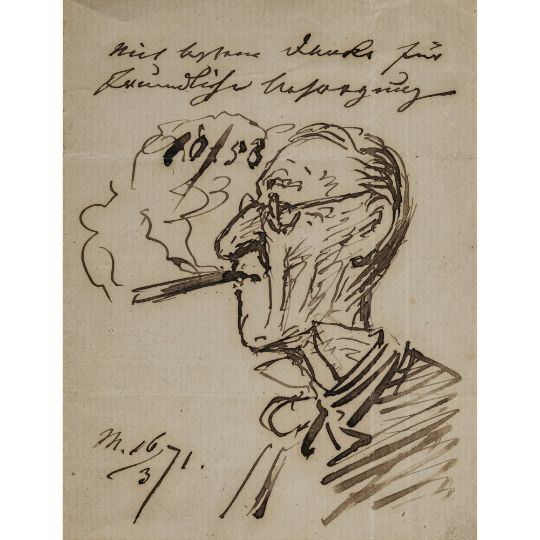 Mit bestem Danke für
freundliche Besorgung
10/53
M. 16/3 71.